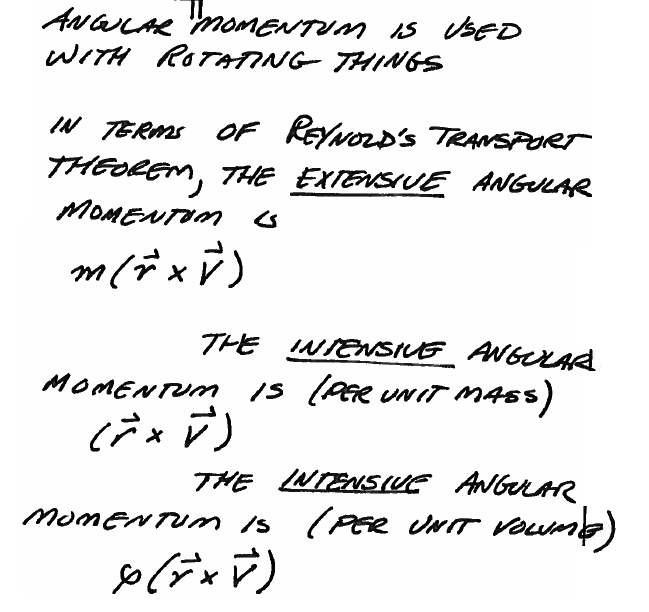 ANGULAR MOMENTUM IS USED
WITH ROTATING THINGS
IN TERMS OF REYNOLD'S TRANSPORT
THEOREM, THE EXTENSIVE ANGULAR
MOMENTUM IS
m(r⃗ × V⃗)
THE INTENSIVE ANGULAR
MOMENTUM IS (PER UNIT MASS)
(r⃗ × V⃗)
THE INTENSIVE ANGULAR
MOMENTUM IS (PER UNIT VOLUME)
ρ(r⃗ × V⃗)